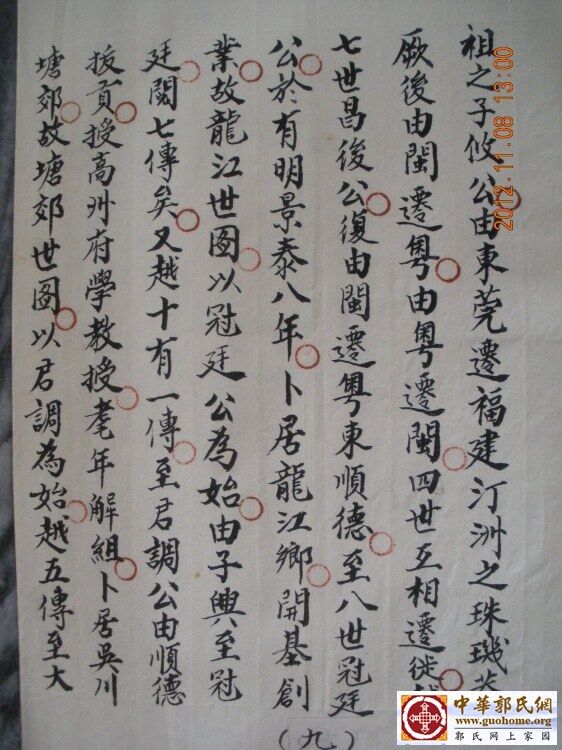 祖之子攸公由東莞遷福建汀洲之珠璣
厥後由閩遷粤由粤遷閩四世互相遷徙
七世昌後公復由閩遷粤東順德至八世冠廷
公於有明景泰八年卜居龍江鄉開基創
業故龍江世圖以冠廷公為始由子興至冠
廷閱七傳矣又越十有一傳至君調公由順德
拔貢授高州府學教授耄年解組卜居吳川
塘郊故塘郊世圖以君調為始越五傳至大
(九)
2012.11.08 13:00
中華郭氏網
www.guohome.org
郭氏网上家园